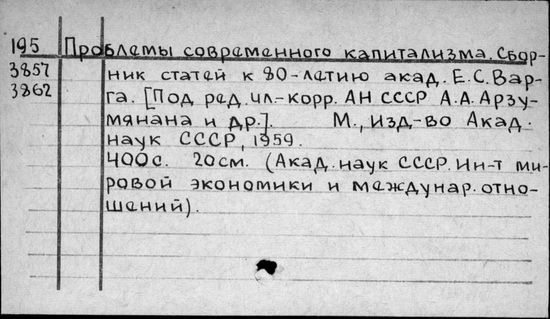 195 Проблемы современного капитализма. Сбор-
3857 ник статей к 80-летию акад. Е.С. Вар-
3862 га. [Под ред. чл.-корр. АН СССР А.А. Арзу-
мянана и др.]. М., изд-во Акад.
наук СССР, 1959.
400с. 20см. (Акад. наук СССР. Ин-т ми-
ровой экономики и междунар. отно-
шений).